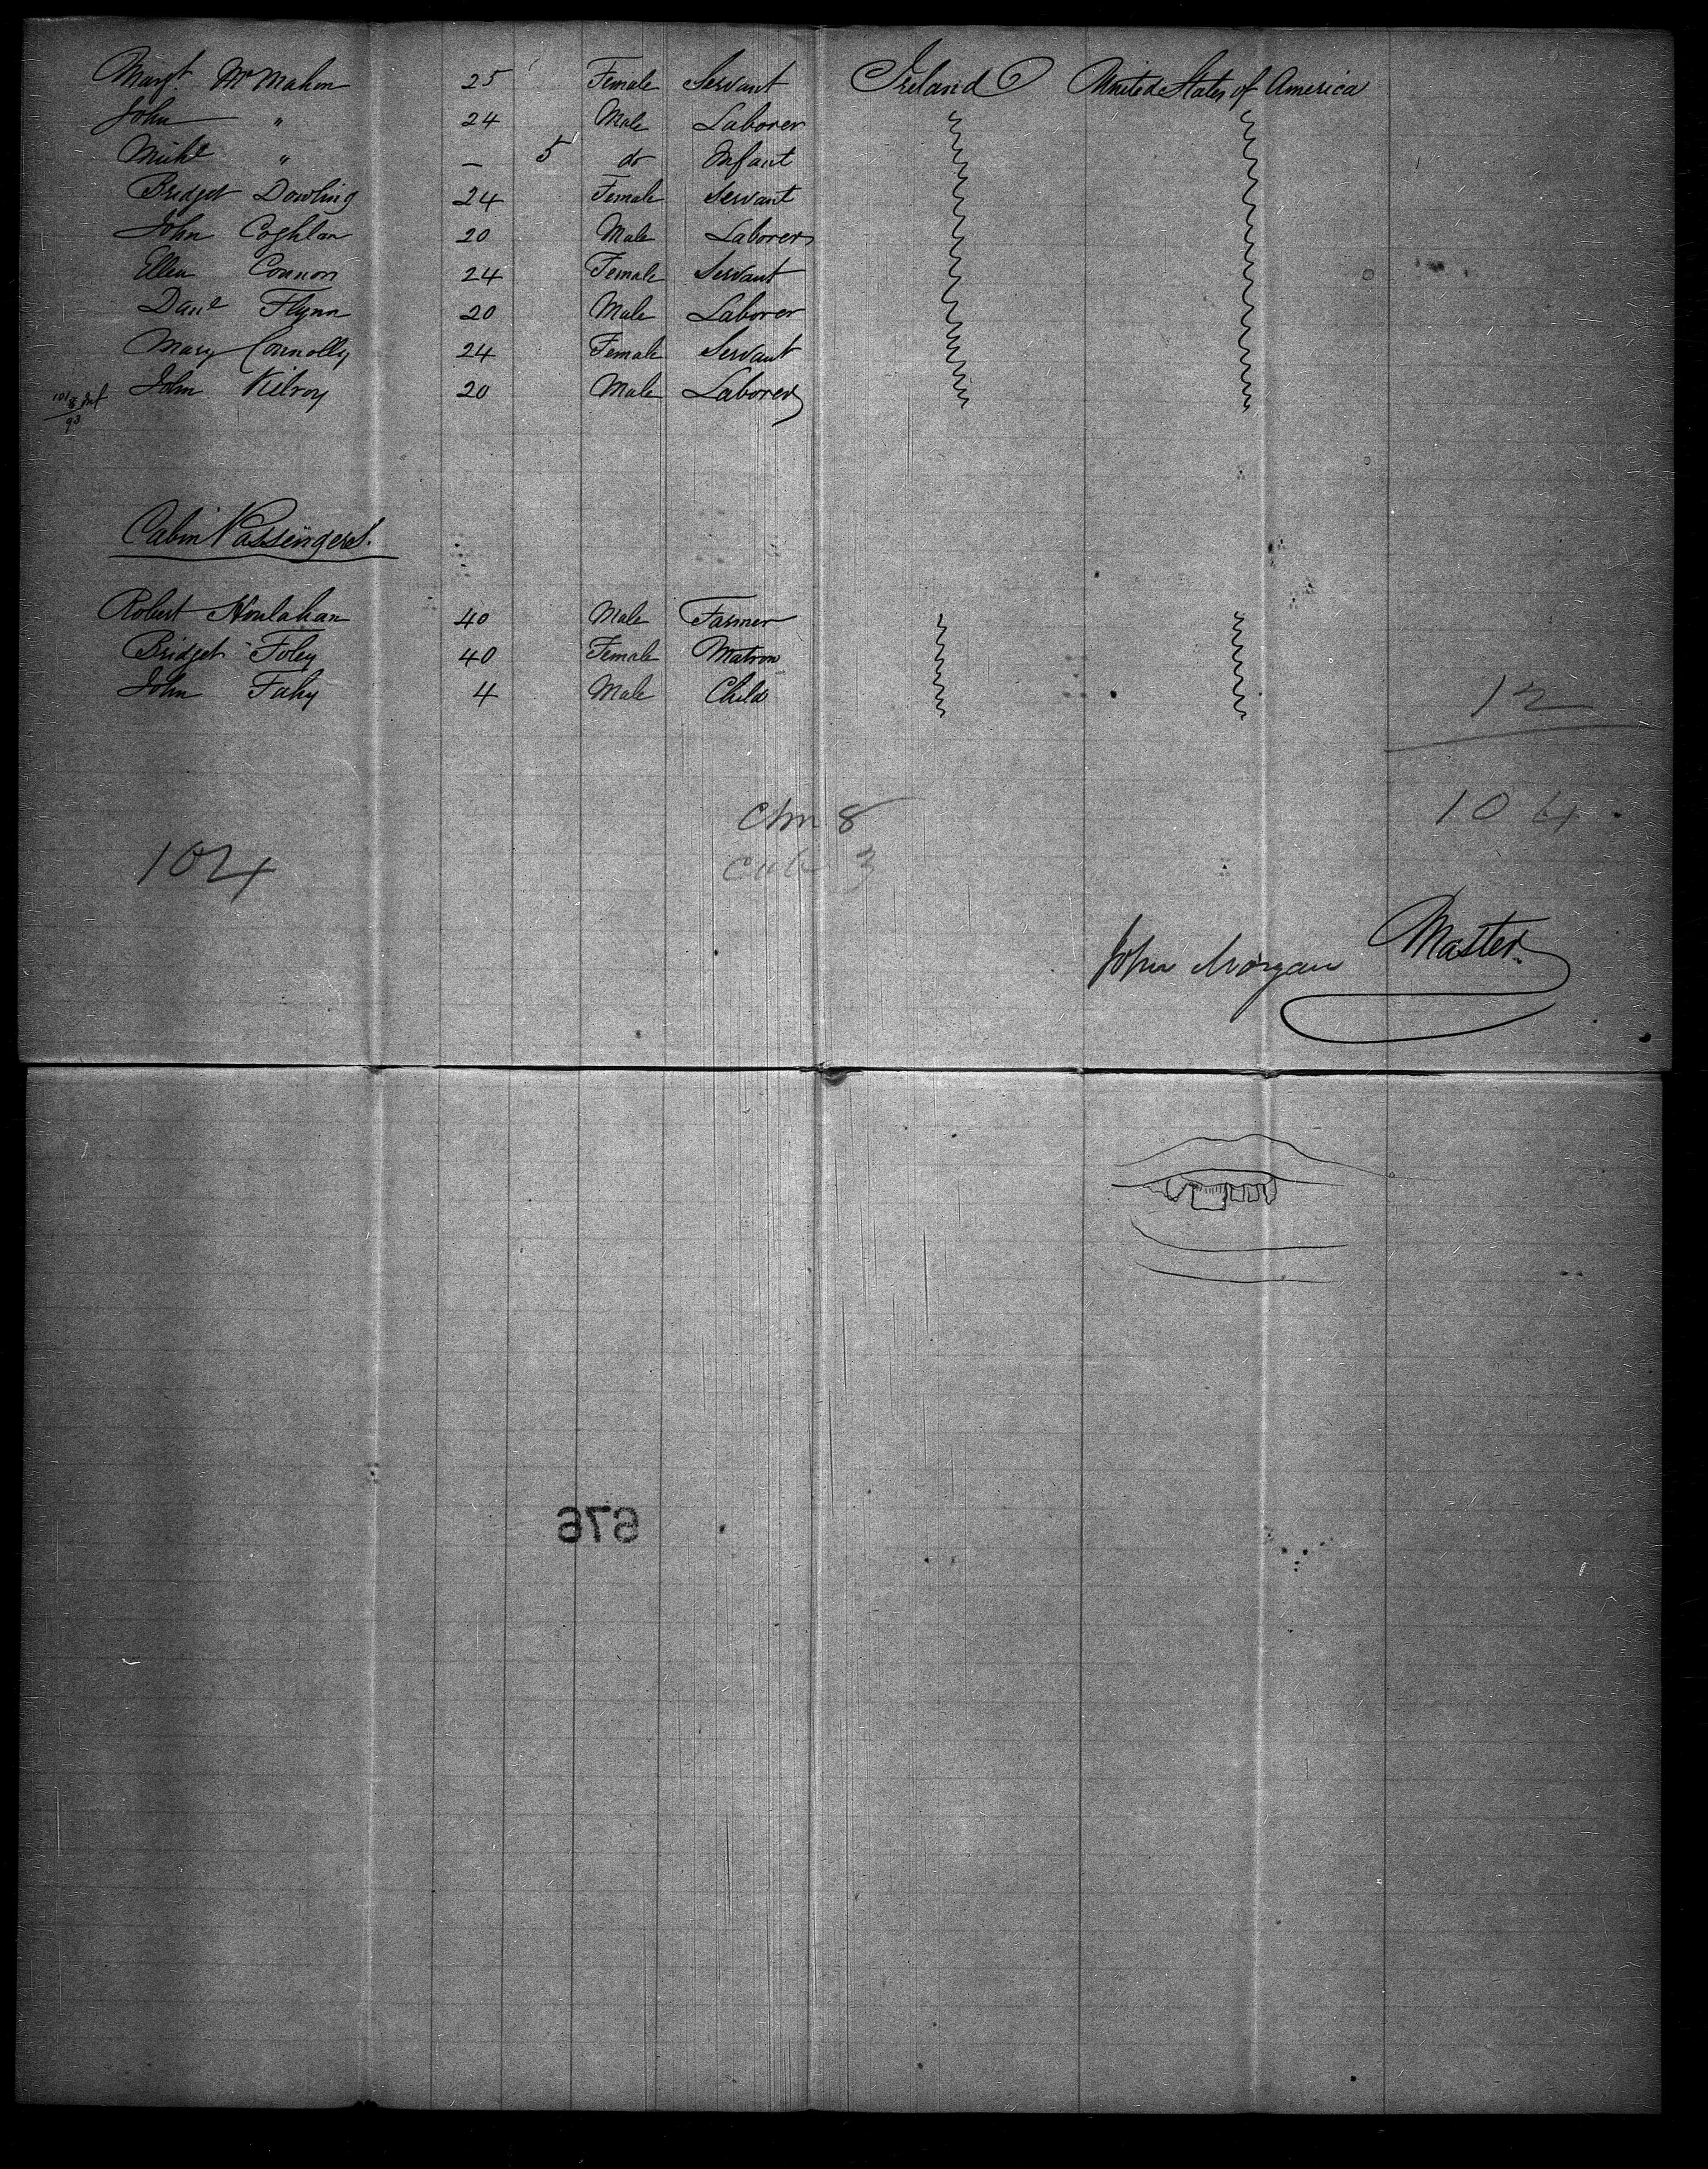 Margt. McMahon 25 Female Servant Ireland United States of America
John " 24 Male Laborer
Michl " — 5 do Infant
Bridget Dowling 24 Female Servant
John Coghlan 20 Male Laborer
Ellen Connon 24 Female Servant
Danl Flynn 20 Male Laborer
Mary Connolly 24 Female Servant
John Kilroy 20 Male Laborer
93
Cabin Passengers.
Robert Houlahan 40 Male Farmer
Bridget Foley 40 Female Matron
John Fahy 4 Male Child
12
Chn 8
104
Cab 3
104
John Morgan Master.
979